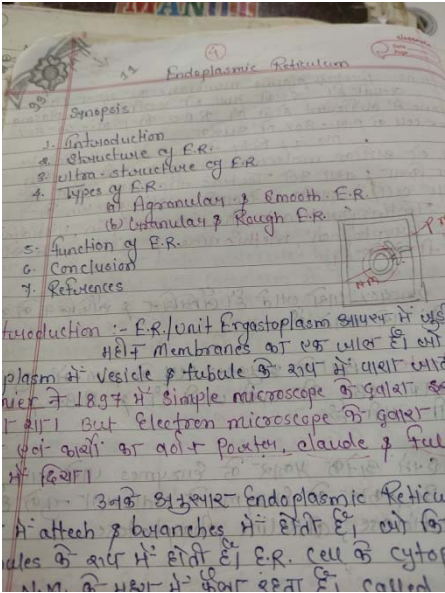 4
11
Endoplasmic Reticulum
Synopsis
1. Introduction
2. Structure of E.R.
3. Ultra-structure of E.R
4. Types of E.R.
a) Agranular & Smooth E.R.
(b) Granular & Rough E.R.
5. Function of E.R.
6. Conclusion
7. References
troduction :- E.R./Unit Ergastoplasm आपस में जुड़ी
महीन Membranes का एक जाल है। जो
plasm में vesicle & tubule के रूप में पाया जाता
nier ने 1897 में Simple microscope के द्वारा
था। But Electron microscope के द्वारा।
एवं कार्यों का वर्णन Pourter, Claude & Full
में दिया।
उनके अनुसार Endoplasmic Reticu
में attech & branches में होती है, जो कि
ules के रूप में होती है। E.R. cell के cytop
N.M. के मध्य में फैला रहता है। called